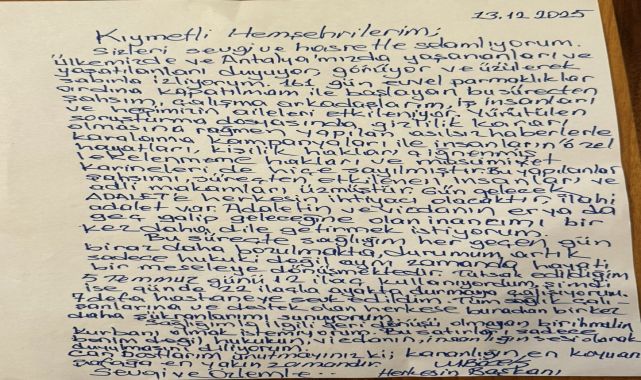 13.12.2025
Kıymetli Hemşehrilerim;
Sizleri sevgi ve hasretle selamlıyorum.
Ülkemizde ve Antalya'mızda yaşananları ve
yaşatılanları duyuyor, görüyor ve üzülerek
sabırla izliyorum. 161 gün evvel parmaklıklar
ardına kapatılmam ile başlayan bu süreçten
şahsım, çalışma arkadaşlarım, iş insanları
ve hepimizin aileleri etkileniyor. Yürütülen
soruşturma dosyasında gizlilik kararı
olmasına rağmen yapılan asılsız haberlerle
karalama kampanyaları ile insanların özel
hayatları, kişilik hakları çiğnenmiş,
lekelenmeme hakları ve masumiyet
karineleri de hiçe sayılmıştır. Bu yapılanlar
şahsımı, süreçten etkilenen insanları ve
adli makamları üzmüştür. Gün gelecek
ADALET'e herkesin ihtiyacı olacaktır. İlahi
adalet var. Adaletin ve vicdanın er ya da
geç galip geleceğine olan inancımı bir
kez daha dile getirmek istiyorum.
Bu süreçte sağlığım her geçen gün
biraz daha bozulmakta, durumum artık
sadece hukuki değil aynı zamanda hayati
bir meseleye dönüşmektedir. Tutsak edildiğim
5 Temmuz günü 12 ilaç kullanıyordum, şimdi
ise günde 22 ilaçla ayakta durmaya çalışıyorum.
7 defa hastaneye sevk edildim. Tüm sağlık çalı
şanlarına ve destek olan herkese buradan bir kez
daha şükranlarımı sunuyorum.
Sağlığımla ilgili geri dönüşü olmayan bir ihmalin
kurbanı olmak istemiyorum. Bu satırları sadece
benim değil hukukun, vicdanın, insanlığın sesi olarak
duymanızı diliyorum.
Can Dostlarım unutmayınız ki; karanlığın en koyu anı
şafağa en yakın zamandır.
Sevgi ve Özlemle.. Herkesin Başkanı